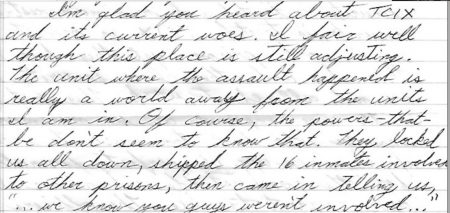 I'm glad you heard about TCIX
and its current woes. I fair well
though this place is still adjusting.
The unit where the assault happened is
really a world away from the units
I am in. Of course, the powers-that-
be don't seem to know that. They locked
us all down, shipped the 16 inmates involved
to other prisons, then came in telling us,
"... we know you guys weren't involved..."